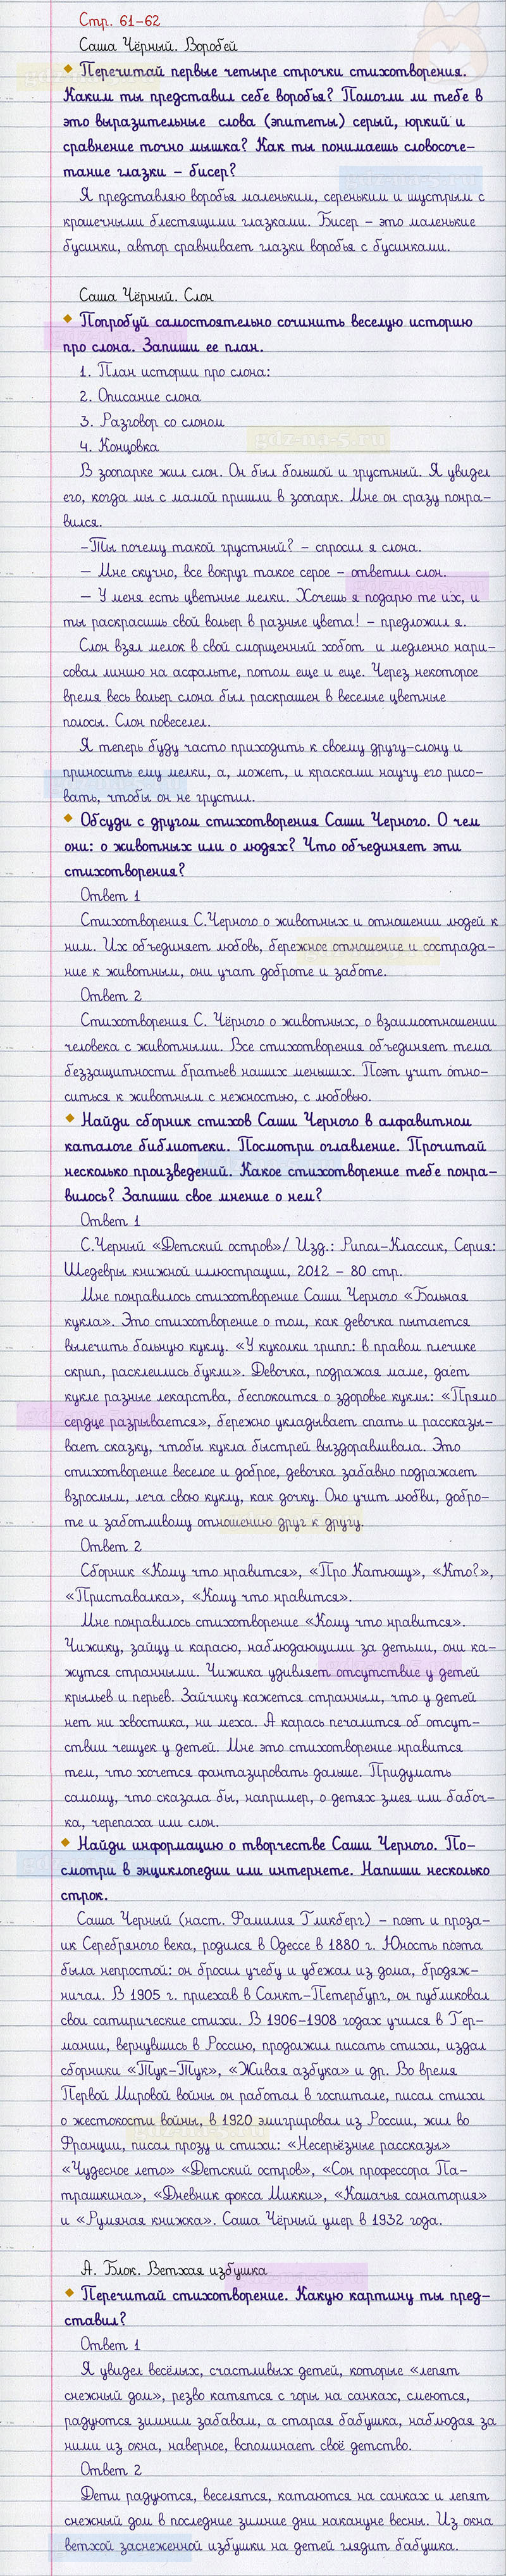 Стр. 61-62
Саша Чёрный. Воробей
Перечитай первые четыре строчки стихотворения.
Каким ты представил себе воробья? Помогли ли тебе в
это выразительные слова (эпитеты) серый, юркий и
сравнение точно мышка? Как ты понимаешь словосоче-
тание глазки – бисер?
Я представляю воробья маленьким, сереньким и шустрым с
крошечными блестящими глазками. Бисер – это маленькие
бусинки, автор сравнивает глазки воробья с бусинками.
Саша Чёрный. Слон
Попробуй самостоятельно сочинить веселую историю
про слона. Запиши ее план.
1. План истории про слона:
2. Описание слона
3. Разговор со слоном
4. Концовка
gdz-na-5.ru
В зоопарке жил слон. Он был большой и грустный. Я увидел
его, когда мы с мамой пришли в зоопарк. Мне он сразу понра-
вился.
-Ты почему такой грустный? – спросил я слона.
– Мне скучно, все вокруг такое серое – ответил слон.
– У меня есть цветные мелки. Хочешь я подарю те их, и
ты раскрасишь свой вольер в разные цвета! – предложил я.
Слон взял мелок в свой сморщенный хобот и медленно нари-
совал линию на асфальте, потом еще и еще. Через некоторое
время весь вольер слона был раскрашен в веселые цветные
полосы. Слон повеселел.
Я теперь буду часто приходить к своему другу-слону и
приносить ему мелки, а, может, и красками научу его рисо-
вать, чтобы он не грустил.
Обсуди с другом стихотворения Саши Черного. О чем
они: о животных или о людях? Что объединяет эти
стихотворения?
Ответ 1
Стихотворения С.Черного о животных и отношении людей к
ним. Их объединяет любовь, бережное отношение и сострада-
ние к животным, они учат доброте и заботе.
Ответ 2
Стихотворения С. Чёрного о животных, о взаимоотношении
человека с животными. Все стихотворения объединяет тема
беззащитности братьев наших меньших. Поэт учит отно-
ситься к животным с нежностью, с любовью.
Найди сборник стихов Саши Черного в алфавитном
каталоге библиотеки. Посмотри оглавление. Прочитай
несколько произведений. Какое стихотворение тебе понра-
вилось? Запиши свое мнение о нем?
Ответ 1
С.Черный «Детский остров»/ Изд.: Рипол-Классик, Серия:
Шедевры книжной иллюстрации, 2012 – 80 стр.
Мне понравилось стихотворение Саши Черного «Больная
кукла». Это стихотворение о том, как девочка пытается
вылечить больную куклу. «У куколки грипп: в правом плечике
скрип, расклеились букли». Девочка, подражая маме, дает
кукле разные лекарства, беспокоится о здоровье куклы: «Прямо
сердце разрывается», бережно укладывает спать и рассказы-
вает сказку, чтобы кукла быстрей выздоравливала. Это
стихотворение веселое и доброе, девочка забавно подражает
взрослым, леча свою куклу, как дочку. Оно учит любви, добро-
те и заботливому отношению друг к другу.
Ответ 2
Сборник «Кому что нравится», «Про Катюшу», «Кто?»,
«Приставалка», «Кому что нравится».
Мне понравилось стихотворение «Кому что нравится».
Чижику, зайцу и карасю, наблюдающими за детьми, они ка-
жутся странными. Чижика удивляет отсутствие у детей
крыльев и перьев. Зайчику кажется странным, что у детей
нет ни хвостика, ни меха. А карась печалится об отсут-
ствии чешуек у детей. Мне это стихотворение нравится
тем, что хочется фантазировать дальше. Придумать
самому, что сказала бы, например, о детях змея или бабоч-
ка, черепаха или слон.
Найди информацию о творчестве Саши Черного. По-
смотри в энциклопедии или интернете. Напиши несколько
строк.
Саша Черный (наст. Фамилия Гликберг) – поэт и проза-
ик Серебряного века, родился в Одессе в 1880 г. Юность поэта
была непростой: он бросил учебу и убежал из дома, бродяж-
ничал. В 1905 г. приехав в Санкт-Петербург, он публиковал
свои сатирические стихи. В 1906-1908 годах учился в Гер-
мании, вернувшись в Россию, продолжил писать стихи, издал
сборники «Тук-Тук», «Живая азбука» и др. Во время
Первой Мировой войны он работал в госпитале, писал стихи
о жестокости войны, в 1920 эмигрировал из России, жил во
Франции, писал прозу и стихи: «Несерьёзные рассказы»
«Чудесное лето» «Детский остров», «Сон профессора Па-
трашкина», «Дневник фокса Микки», «Кошачья санатория»
и «Румяная книжка». Саша Чёрный умер в 1932 года.
А. Блок. Ветхая избушка
Перечитай стихотворение. Какую картину ты пред-
ставил?
Ответ 1
Я увидел весёлых, счастливых детей, которые «лепят
снежный дом», резво катятся с горы на санках, смеются,
радуются зимним забавам, а старая бабушка, наблюдая за
ними из окна, наверное, вспоминает своё детство.
Ответ 2
Дети радуются, веселятся, катаются на санках и лепят
снежный дом в последние зимние дни накануне весны. Из окна
ветхой заснеженной избушки на детей глядит бабушка.